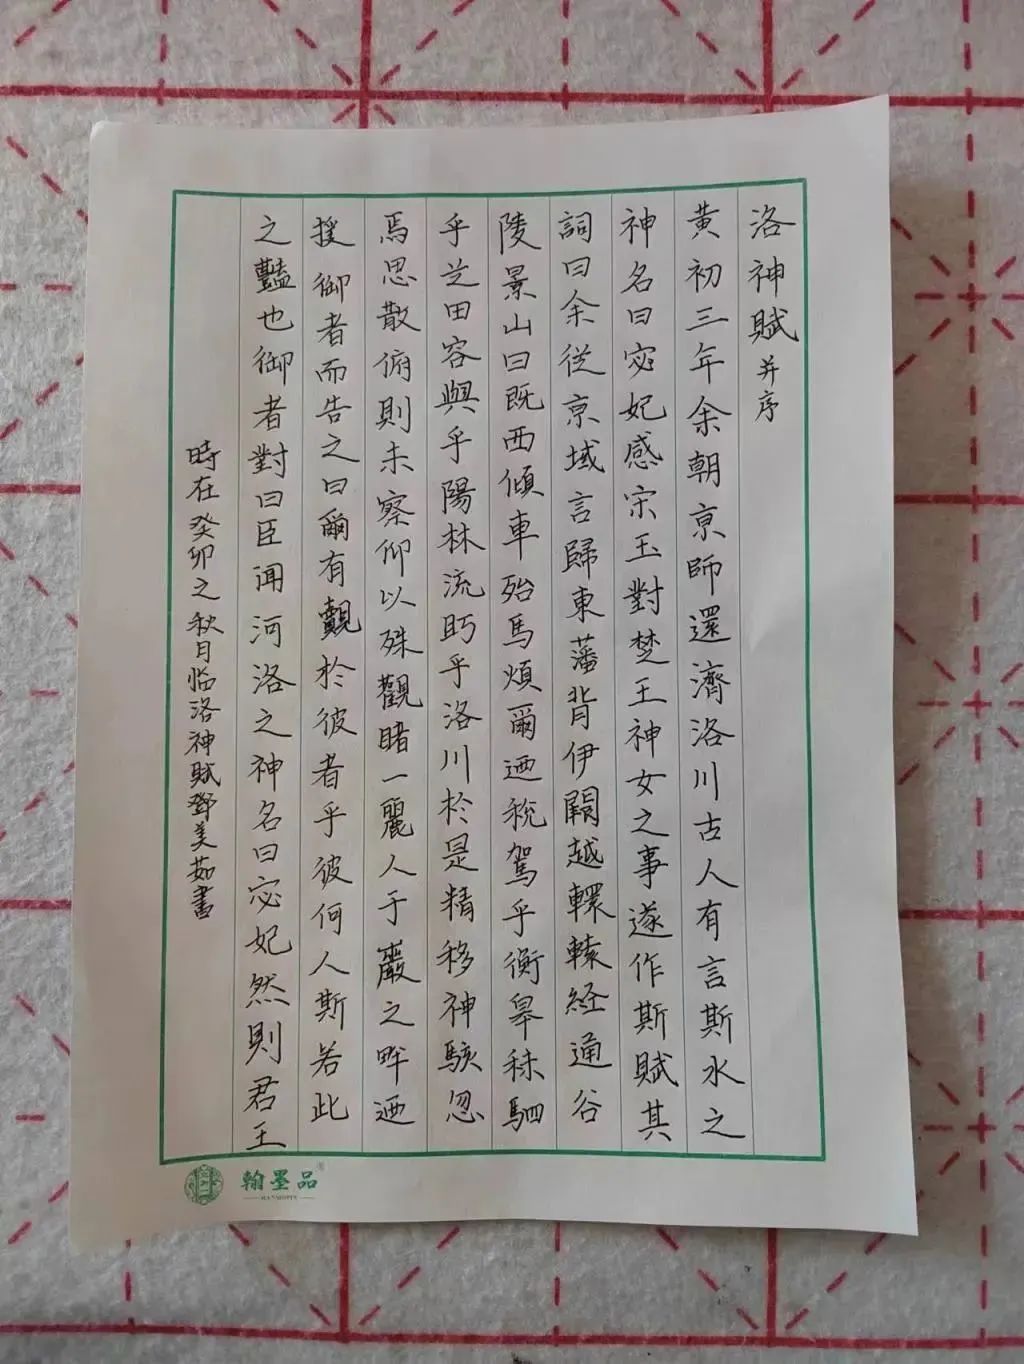 洛神賦并序
黄初三年余朝京師還濟洛川古人有言斯水之
神名曰宓妃感宋玉對楚王神女之事遂作斯賦其
詞曰余從京域言歸東藩背伊闕越轘轅経通谷
陵景山日既西傾車殆馬煩爾迺税駕乎蘅皋秣駟
乎芝田容與乎陽林流眄乎洛川於是精移神駭忽
焉思散俯則未察仰以殊觀睹一麗人于巖之畔迺
援御者而告之曰爾有覿於彼者乎彼何人斯若此
之豔也御者對曰臣闻河洛之神名曰宓妃然則君王
時在癸卯之秋月临洛神賦鄧美茹書
翰墨品